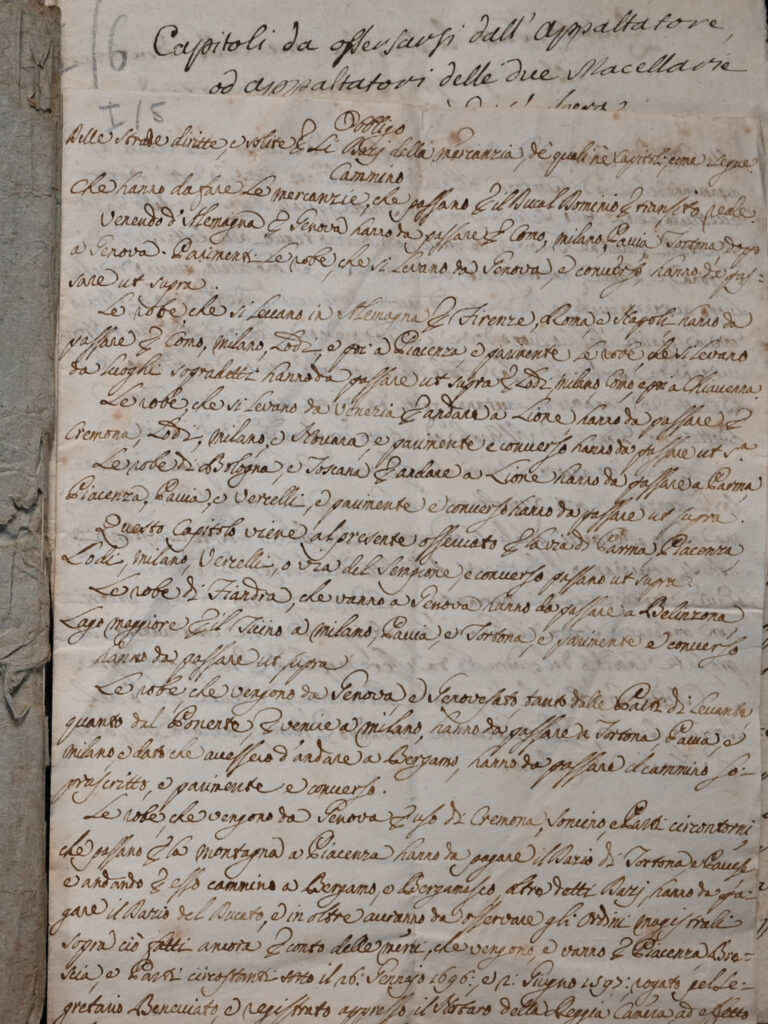 Capitoli da osservarsi dall'Appaltatore,
od appaltatori delle due Macellarie
I/5
Obbligo
Delle strade diritte, e solite ꝑ Li Bazj della mercanzia, de quali nè Capitoli come segue.
Cammino
Che hanno da fare Le mercanzie, che passano ꝑ il Ducal Dominio ꝑ transito reale.
Venendo d'Alemagna ꝑ Genova hanno da passare ꝑ Como, milano, Pavia Tortona dopo
a Genova. Parimenti Le robe, che si Levano da Genova, e converso hanno da pas-
sare ut supra.
Le robe, che si Levano in Alemagna ꝑ Firenze, Roma, e Napoli hanno da
passare ꝑ Como, milano, Lodi, e poi a Piacenza, e parimente Le robe, che si Levano
da luoghi sopradetti hanno da passare ut supra ꝑ Lodi milano, Como, e poi a Chiavenna.
Le robe, che si Levano da Venezia ꝑ andare a Lione hanno da passare ꝑ
Cremona, Lodi, milano, e Novara, e parimente e converso hanno da passare ut s.a
Le robe di Bologna, e Toscana ꝑ andare a Lione hanno da passare a Parma,
Piacenza, Pavia, e Vercelli, e parimente e converso hanno da passare ut supra.
Questo Capitolo viene al presente osservato ꝑ la via di Parma Piacenza,
Lodi, milano, Vercelli, o via del Sempione, e converso passano ut supra.
Le robe di Fiandra, che vanno a Genova hanno da passare a Belinzona
Lago maggiore ꝑ il Ticino a milano, Pavia, e Tortona, e parimente e converso
hanno da passare ut supra.
Le robe, che vengono da Genova, e Genovesato, tanto dalle Parti di Levante
quanto dal Ponente ꝑ venire a milano, hanno da passare da Tortona Pavia e
milano e dato che avessero d'andare a Bergamo, hanno da passare il cammino so-
prascritto, e parimente e converso.
Le robe, che vengono da Genova ꝑ uso di Cremona, Soncino e Parti circontorni
che passano ꝑ la montagna a Piacenza hanno da pagare il Dazio di Tortona e Pavese
e andando ꝑ esso cammino a Bergamo, e Bergamesco, altre detti Dazj hanno da pa-
gare il Dazio del Ducato, e in oltre avranno da osservare gli Ordini magistrali
sopra ciò fatti ancora ꝑ conto delle merci, che vengono e vanno ꝑ Piacenza, Bre-
scia, e Parti circostanti sotto il 26: Gennajo 1696: e 2: Giugno 1597: rogato pel Se-
gretario Benevviato, e registrato appresso il Notaro della Reggia Camera ad effetto